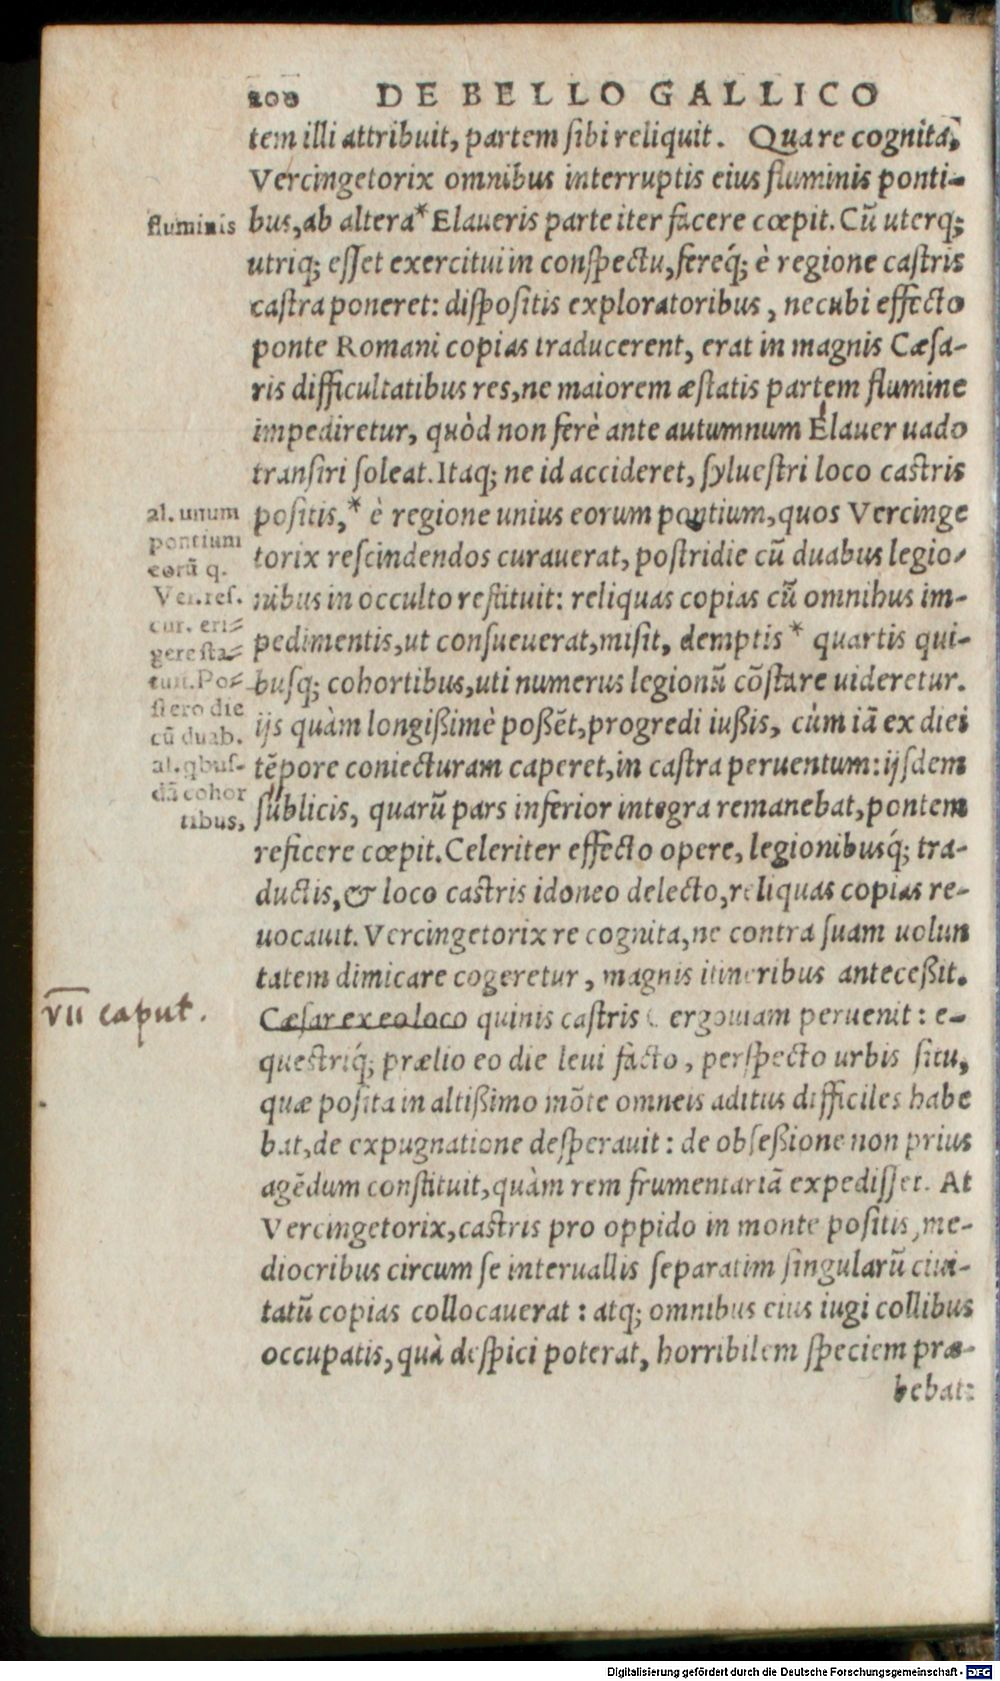 200 DE BELLO GALLICO
tem illi attribuit, partem ſibi reliquit. Quare cognita,
Vercingetorix omnibus interruptis eius fluminis ponti-
fluminis
bus, ab altera* Elaueris parte iter facere cœpit. Cũ uterq;
utriq; eſſet exercitui in conſpectu, fereq́; è regione caſtris
caſtra poneret: diſpoſitis exploratoribus, necubi effecto
ponte Romani copias traducerent, erat in magnis Cæſa-
ris difficultatibus res, ne maiorem æſtatis partem flumine
impediretur, quòd non ferè ante autumnum Elauer uado
tranſiri ſoleat. Itaq; ne id accideret, ſylueſtri loco caſtris
poſitis,* è regione unius eorum pontium, quos Vercinge
torix reſcindendos curauerat, poſtridie cũ duabus legio-
nibus in occulto reſtituit: reliquas copias cũ omnibus im-
pedimentis, ut conſueuerat, miſit, demptis* quartis qui-
busq; cohortibus, uti numerus legionũ cõſtare uideretur.
ijs quàm longißimè poßẽt, progredi iußis, cùm iã ex diei
tẽpore coniecturam caperet, in caſtra peruentum: ijſdem
ſublicis, quarũ pars inferior integra remanebat, pontem
reficere cœpit. Celeriter effecto opere, legionibusq́; tra-
ductis, & loco caſtris idoneo delecto, reliquas copias re-
uocauit. Vercingetorix re cognita, ne contra ſuam uolun
tatem dimicare cogeretur, magnis itineribus anteceßit.
al. unum
pontium
eorũ q.
Ver. reſ.
cur. eri-
gere ſta-
tuit. Po-
ſtero die
cũ duab.
al. qbuſ-
dã cohor
tibus,
vii caput.
Cæſar ex eo loco quinis caſtris ergouiam peruenit: e-
queſtriq́; prælio eo die leui facto, perſpecto urbis ſitu,
quæ poſita in altißimo mõte omneis aditus difficiles habe
bat, de expugnatione deſperauit: de obſeßione non prius
agẽdum conſtituit, quàm rem frumentariã expediſſet. At
Vercingetorix, caſtris pro oppido in monte poſitis, me-
diocribus circum ſe interuallis ſeparatim ſingularũ ciui-
tatũ copias collocauerat: atq; omnibus eius iugi collibus
occupatis, quà deſpici poterat, horribilem ſpeciem præ-
bebat:
Digitalisierung gefördert durch die Deutsche Forschungsgemeinschaft - DFG